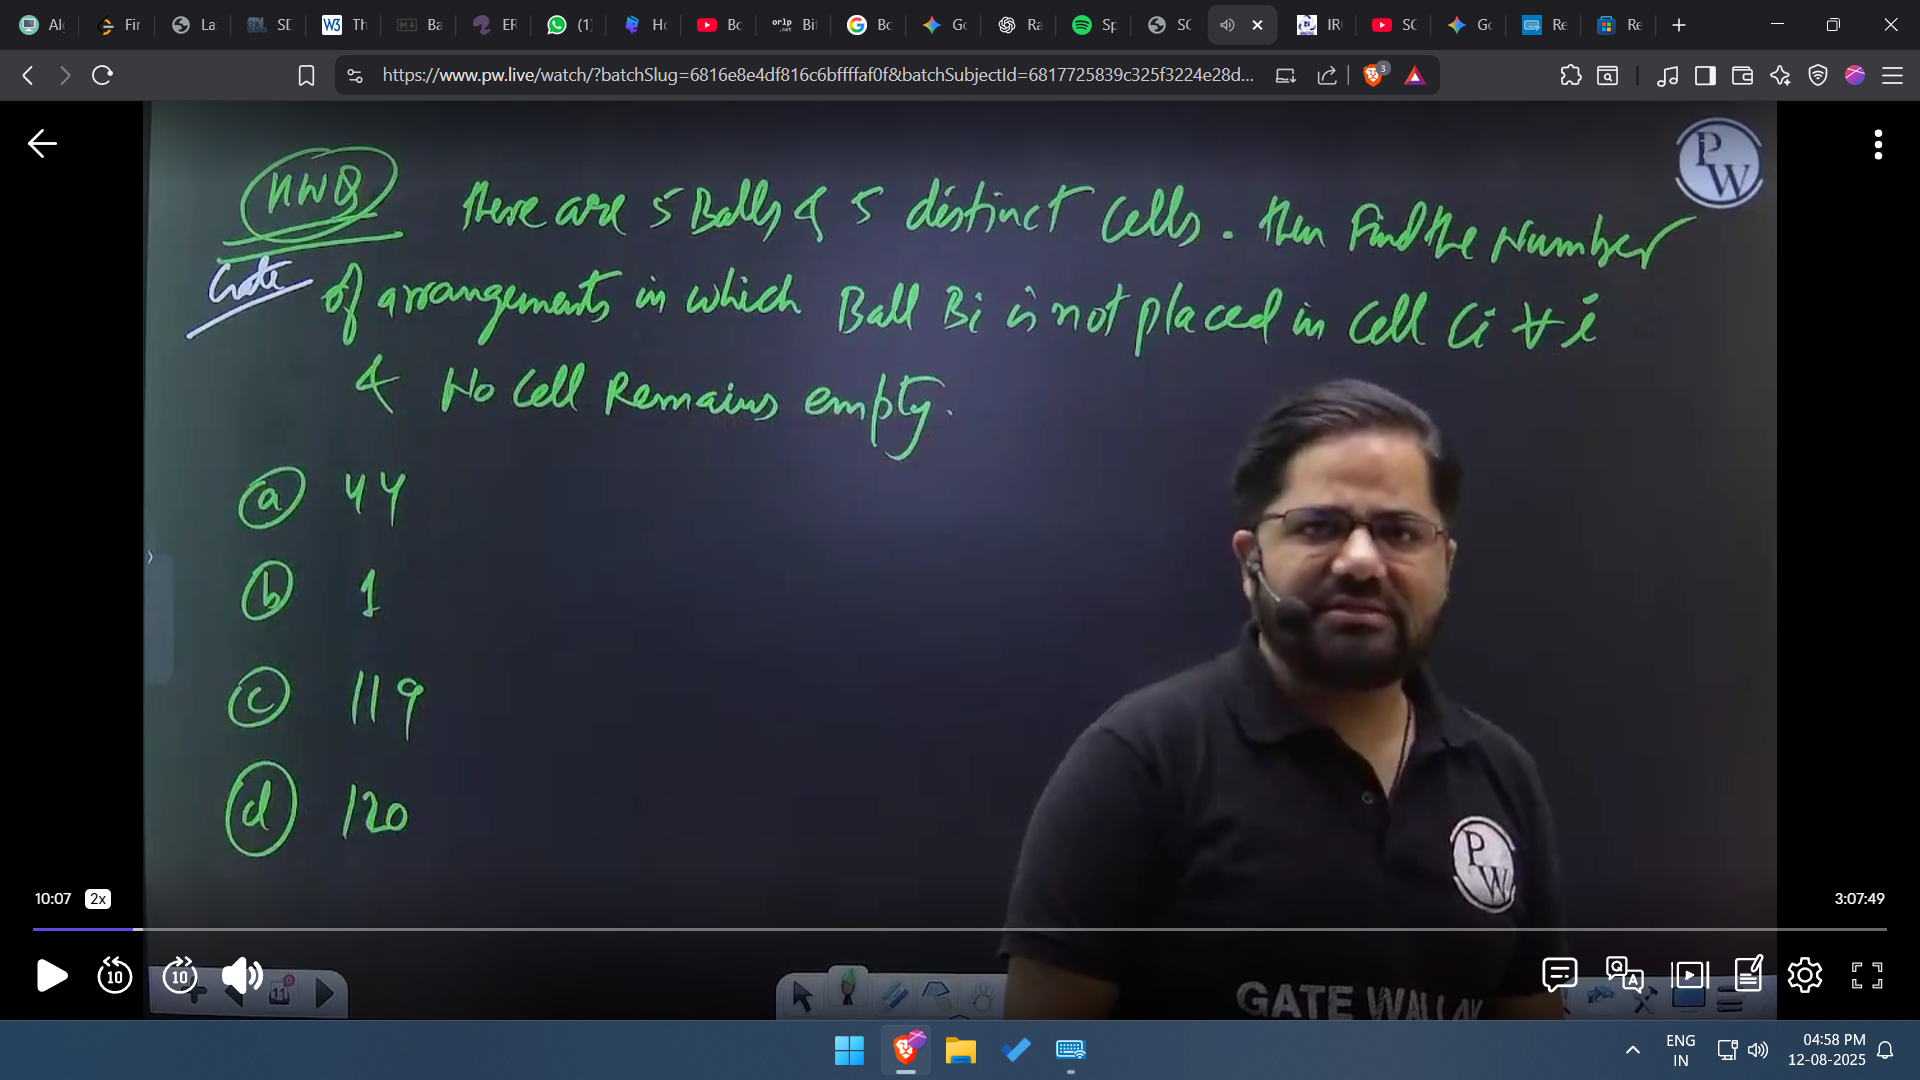 Al
Fir
La
SD
Th
Ba
ER
(1)
Ho
Bo
Bi
Bo
Go
Ra
Sp
SC
IR
SC
Go
Re
Re
https://www.pw.live/watch/?batchSlug=6816e8e4df816c6bffffaf0f&batchSubjectId=6817725839c325f3224e28d...
3
HWQ There are 5 Balls & 5 distinct Cells. then Find the Number
Gate of arrangements in which Ball Bi is not placed in Cell Ci ∀ i
& No Cell Remains empty.
(a) 44
(b) 1
(c) 119
(d) 120
PW
PW
GATE WALLAH
10:07 2x
3:07:49
10
10
11
ENG
IN
04:58 PM
12-08-2025